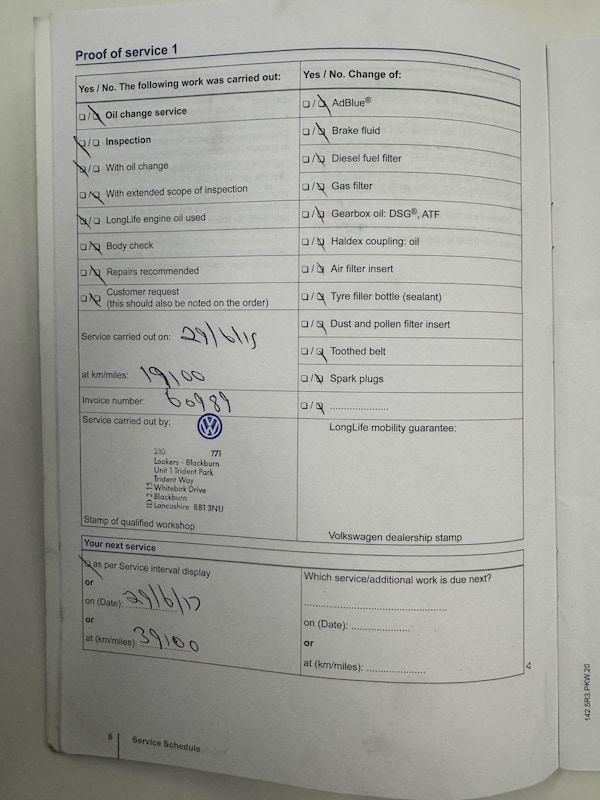 Proof of service 1
Yes / No. The following work was carried out:
❏ / ❏ Oil change service
❏ / ❏ Inspection
❏ / ❏ With oil change
❏ / ❏ With extended scope of inspection
❏ / ❏ LongLife engine oil used
❏ / ❏ Body check
❏ / ❏ Repairs recommended
❏ / ❏ Customer request
(this should also be noted on the order)
Service carried out on: 29/6/15
at km/miles: 19100
Invoice number: 60989
Service carried out by:
210 771
Lookers - Blackburn
Unit 1 Trident Park
Trident Way
Whitebirk Drive
Blackburn
Lancashire BB1 3NU
ID 2.15
Stamp of qualified workshop
Yes / No. Change of:
❏ / ❏ AdBlue®
❏ / ❏ Brake fluid
❏ / ❏ Diesel fuel filter
❏ / ❏ Gas filter
❏ / ❏ Gearbox oil: DSG®, ATF
❏ / ❏ Haldex coupling: oil
❏ / ❏ Air filter insert
❏ / ❏ Tyre filler bottle (sealant)
❏ / ❏ Dust and pollen filter insert
❏ / ❏ Toothed belt
❏ / ❏ Spark plugs
❏ / ❏ .....................
LongLife mobility guarantee:
Volkswagen dealership stamp
Your next service
❏ as per Service interval display
or
on (Date): 29/6/17
or
at (km/miles): 39100
Which service/additional work is due next?
..................................................
on (Date): .....................
or
at (km/miles): .....................
6 Service Schedule
142.5R3.PKW.20